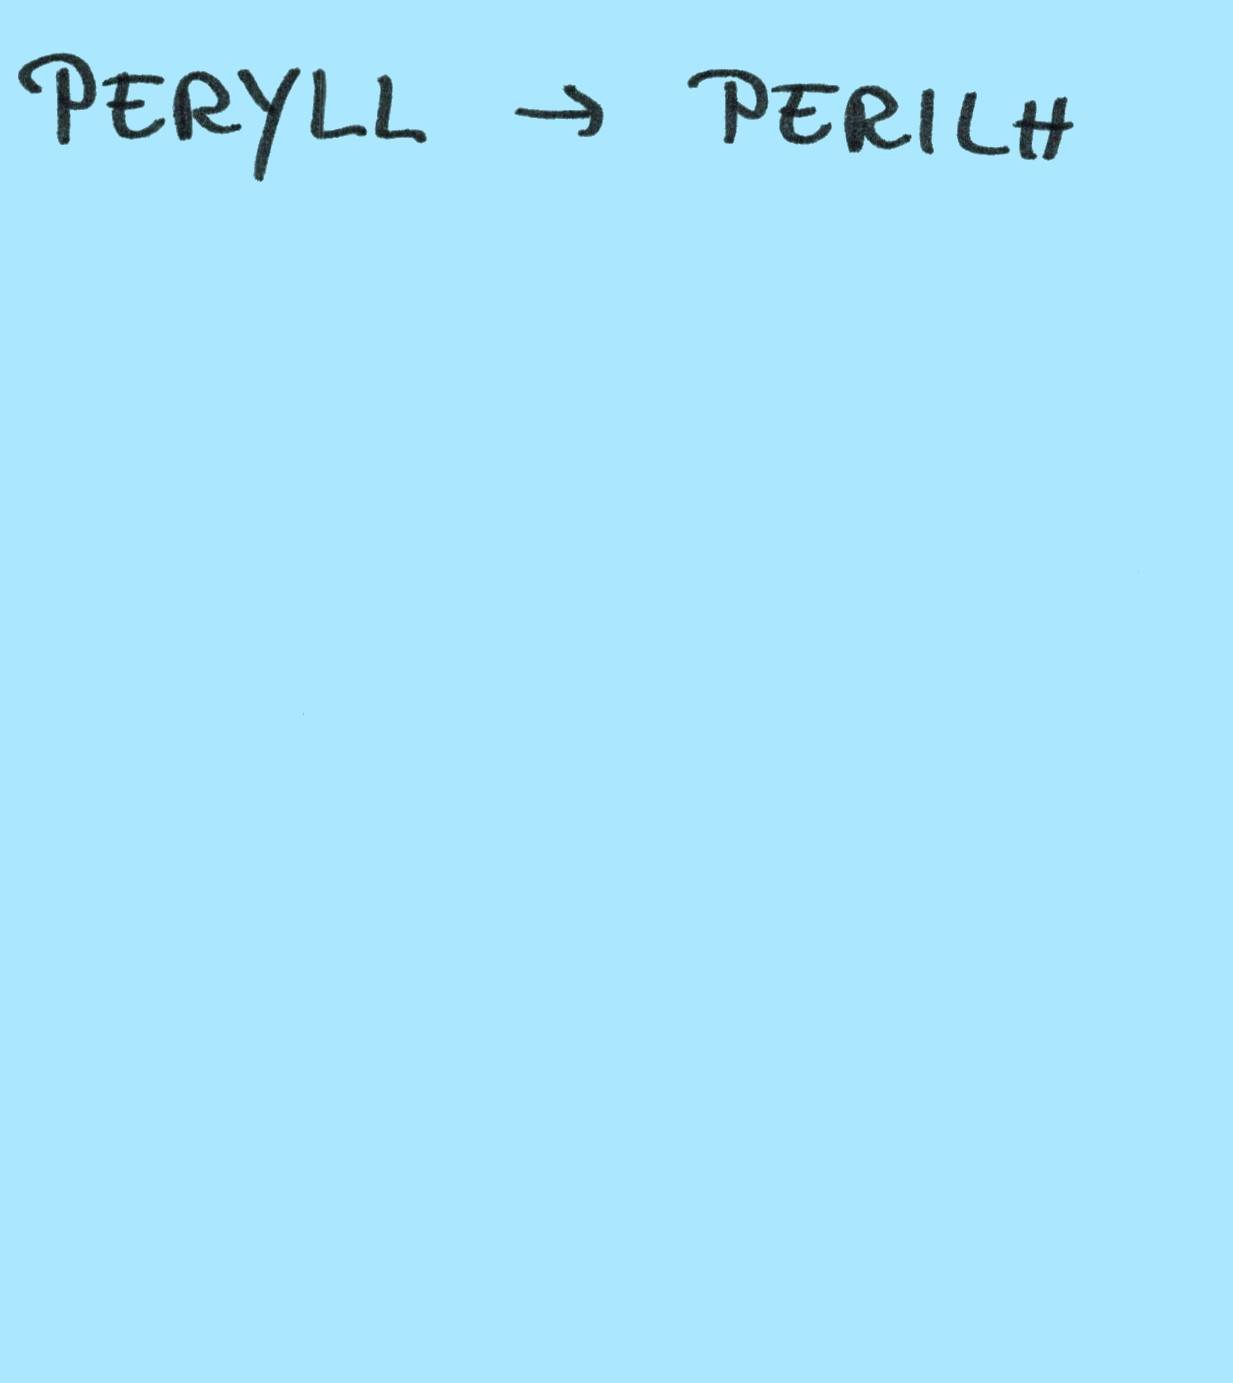 PERYLL → PERILH